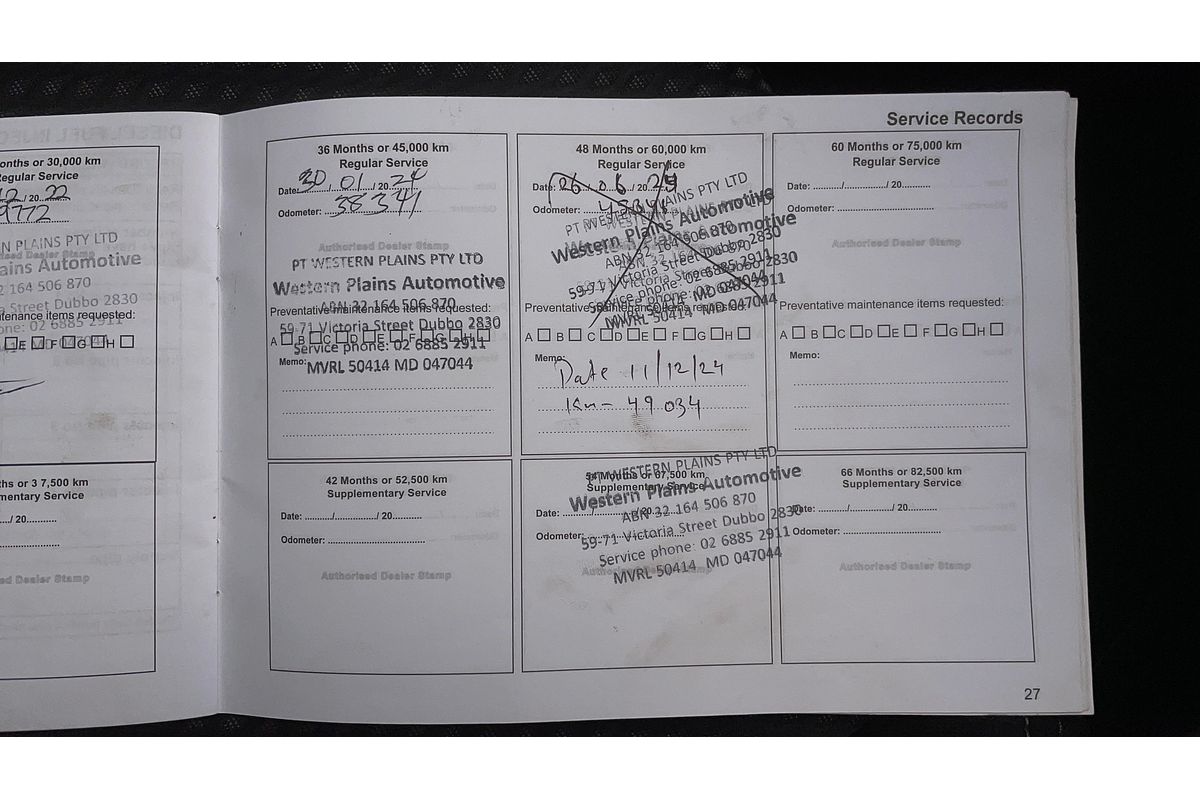 Service Records
onths or 30,000 km
Regular Service
12 / 20 22
9772
N PLAINS PTY LTD
ains Automotive
2 164 506 870
a Street Dubbo 2830
one: 02 6885 2911
tenance items requested:
E F G H
hs or 3 7,500 km
mentary Service
/ 20
ed Dealer Stamp
36 Months or 45,000 km
Regular Service
Date: 30 / 01 / 20 24
Odometer: 38341
Authorised Dealer Stamp
PT WESTERN PLAINS PTY LTD
Western Plains Automotive
ABN 32 164 506 870
Preventative maintenance items requested:
59-71 Victoria Street Dubbo 2830
A B C D E F G H
Service phone: 02 6885 2911
Memo:
MVRL 50414 MD 047044
48 Months or 60,000 km
Regular Service
Date: 26 / 06 / 20
Odometer:
PT WESTERN PLAINS PTY LTD
Western Plains Automotive
ABN 32 164 506 870
59-71 Victoria Street Dubbo 2830
Service phone: 02 6885 2911
MVRL 50414 MD 047044
Preventative maintenance items requested:
A B C D E F G H
Memo:
Date 11/12/24
Km - 49 034
60 Months or 75,000 km
Regular Service
Date: / / 20
Odometer:
Authorised Dealer Stamp
Preventative maintenance items requested:
A B C D E F G H
Memo:
42 Months or 52,500 km
Supplementary Service
Date: / / 20
Odometer:
Authorised Dealer Stamp
54 Months or 67,500 km
Supplementary Service
Date: / / 20
Odometer:
Authorised Dealer Stamp
PT WESTERN PLAINS PTY LTD
Western Plains Automotive
ABN 32 164 506 870
59-71 Victoria Street Dubbo 2830
Service phone: 02 6885 2911
MVRL 50414 MD 047044
66 Months or 82,500 km
Supplementary Service
Date: / / 20
Odometer:
Authorised Dealer Stamp
27